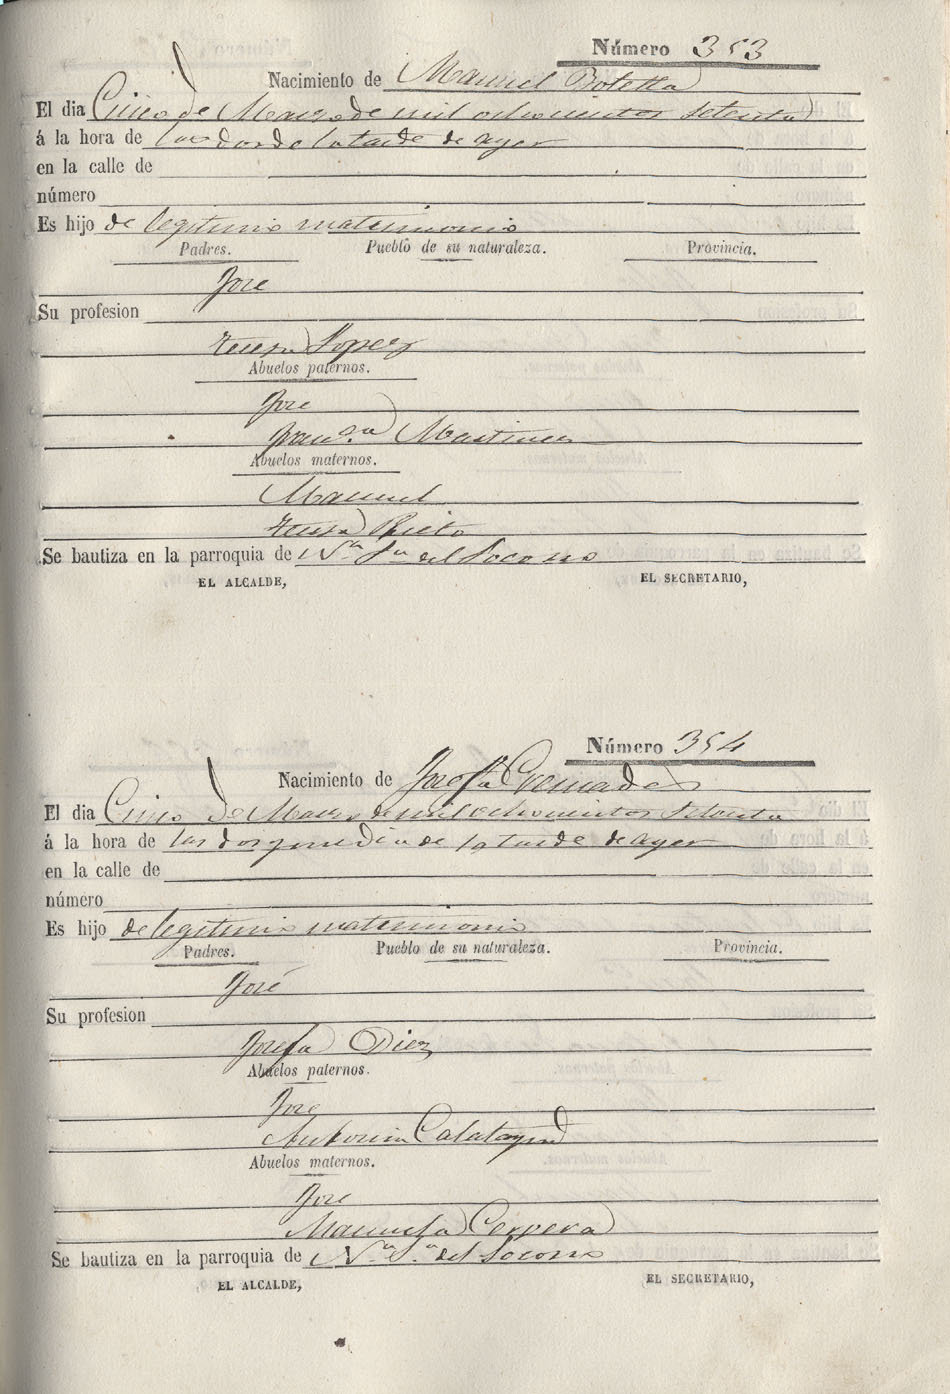 Número 353
Nacimiento de Manuel Botella
El dia Cinco de Marzo de mil ochocientos setenta
á la hora de las dos de la tarde de ayer
en la calle de
número
Es hijo de legitimo matrimonio
Padres. Pueblo de su naturaleza. Provincia.
Jose
Su profesion
Teresa Lopez
Abuelos paternos.
Jose
Franca Martinez
Abuelos maternos.
Manuel
Teresa Prieto
Se bautiza en la parroquia de Na Sa del Socorro
EL ALCALDE, EL SECRETARIO,
Número 354
Nacimiento de Josefa Cremades
El dia Cinco de Marzo de mil ochocientos setenta
á la hora de las dos y media de la tarde de ayer
en la calle de
número
Es hijo de legitimo matrimonio
Padres. Pueblo de su naturaleza. Provincia.
José
Su profesion
Josefa Diez
Abuelos paternos.
Jose
Antonia Calatayud
Abuelos maternos.
Jose
Manuela Cervera
Se bautiza en la parroquia de Na Sa del Socorro
EL ALCALDE, EL SECRETARIO,